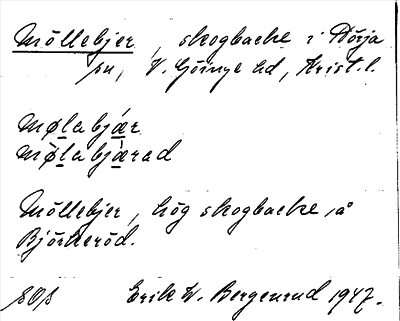 Möllebjer, skogbacke i Dörja
sn, V. Göinge hd, Krist. l.
møl̲abjǽ̲r
mø̲̀l̲abjæ̲̀rad
Möllebjer, hög skogbacke å
Björkeröd.
Erik W. Bergenrud 1947.